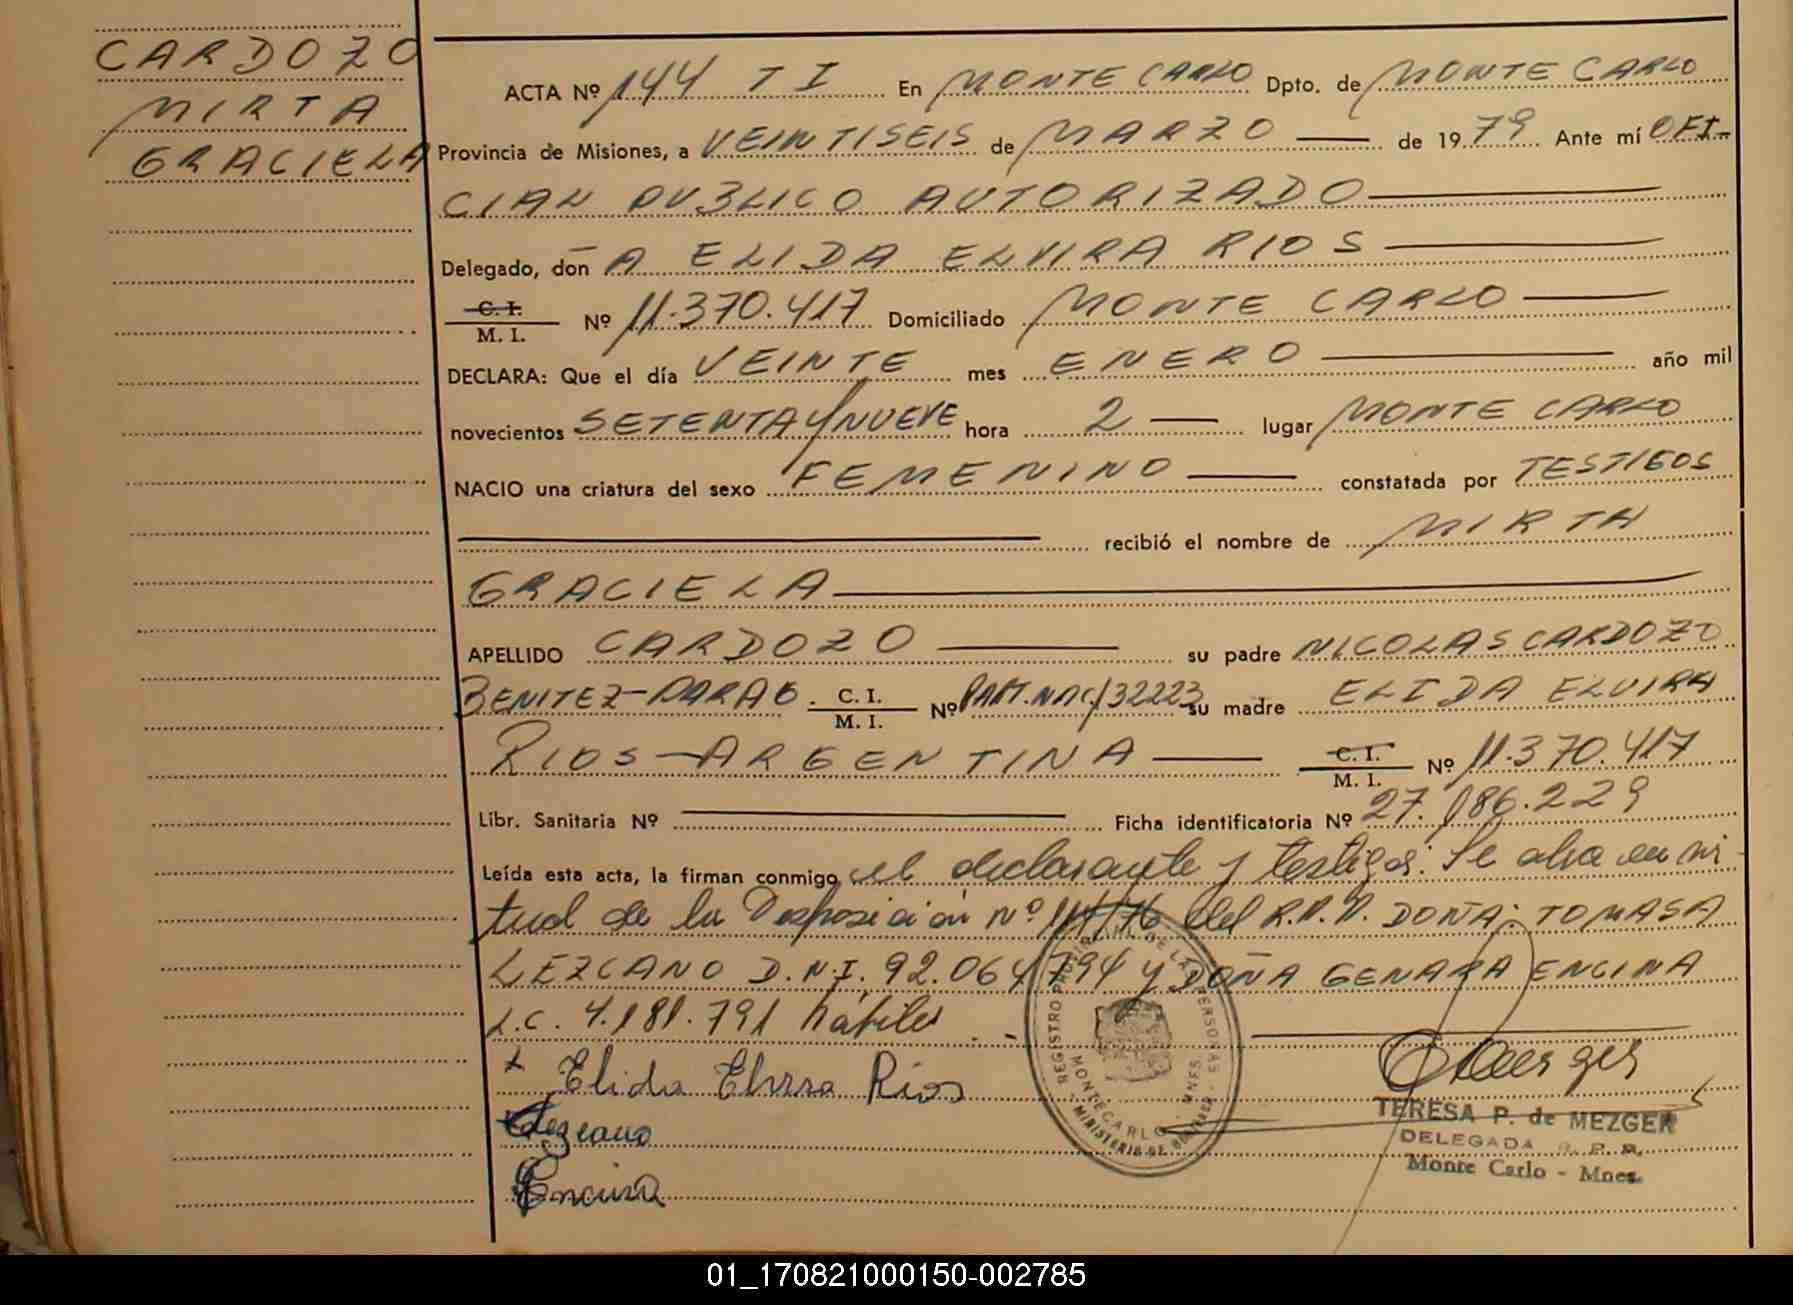 CARDOZO
MIRTA
GRACIELA
ACTA Nº 144 T I En MONTE CARLO Dpto. de MONTE CARLO
Provincia de Misiones, a VEINTISEIS de MARZO — de 1979 Ante mí OFI-
CIAL PUBLICO AUTORIZADO —
Delegado, don A ELIDA ELVIRA RIOS —
C. I.
M. I. Nº 11.370.417 Domiciliado MONTE CARLO —
DECLARA: Que el día VEINTE mes ENERO — año mil
novecientos SETENTA Y NUEVE hora 2 — lugar MONTE CARLO
NACIO una criatura del sexo FEMENINO — constatada por TESTIGOS
— recibió el nombre de MIRTA
GRACIELA —
APELLIDO CARDOZO — su padre NICOLAS CARDOZO
BENITEZ-PARAG. C. I.
M. I. Nº PART.NAC/32223 su madre ELIDA ELVIRA
RIOS-ARGENTINA — C. I.
M. I. Nº 11.370.417
Libr. Sanitaria Nº — Ficha identificatoria Nº 27.186.229
Leída esta acta, la firman conmigo el declarante y testigos: Se labra en vir
tud de la Disposición Nº 114/76 del R.P.P. DOÑA: TOMASA
LEZCANO D.N.I. 92.064.794 y DOÑA GENARA ENCINA
L.C. 4.181.791 hábiles
x Elida Elvira Rios
Lezcano
Encina
REGISTRO PROVINCIAL DE LAS PERSONAS
MONTECARLO - MNES.
MINISTERIO DE GOBIERNO
TERESA P. de MEZGER
DELEGADA R. P. P.
Monte Carlo - Mnes.
01_170821000150-002785